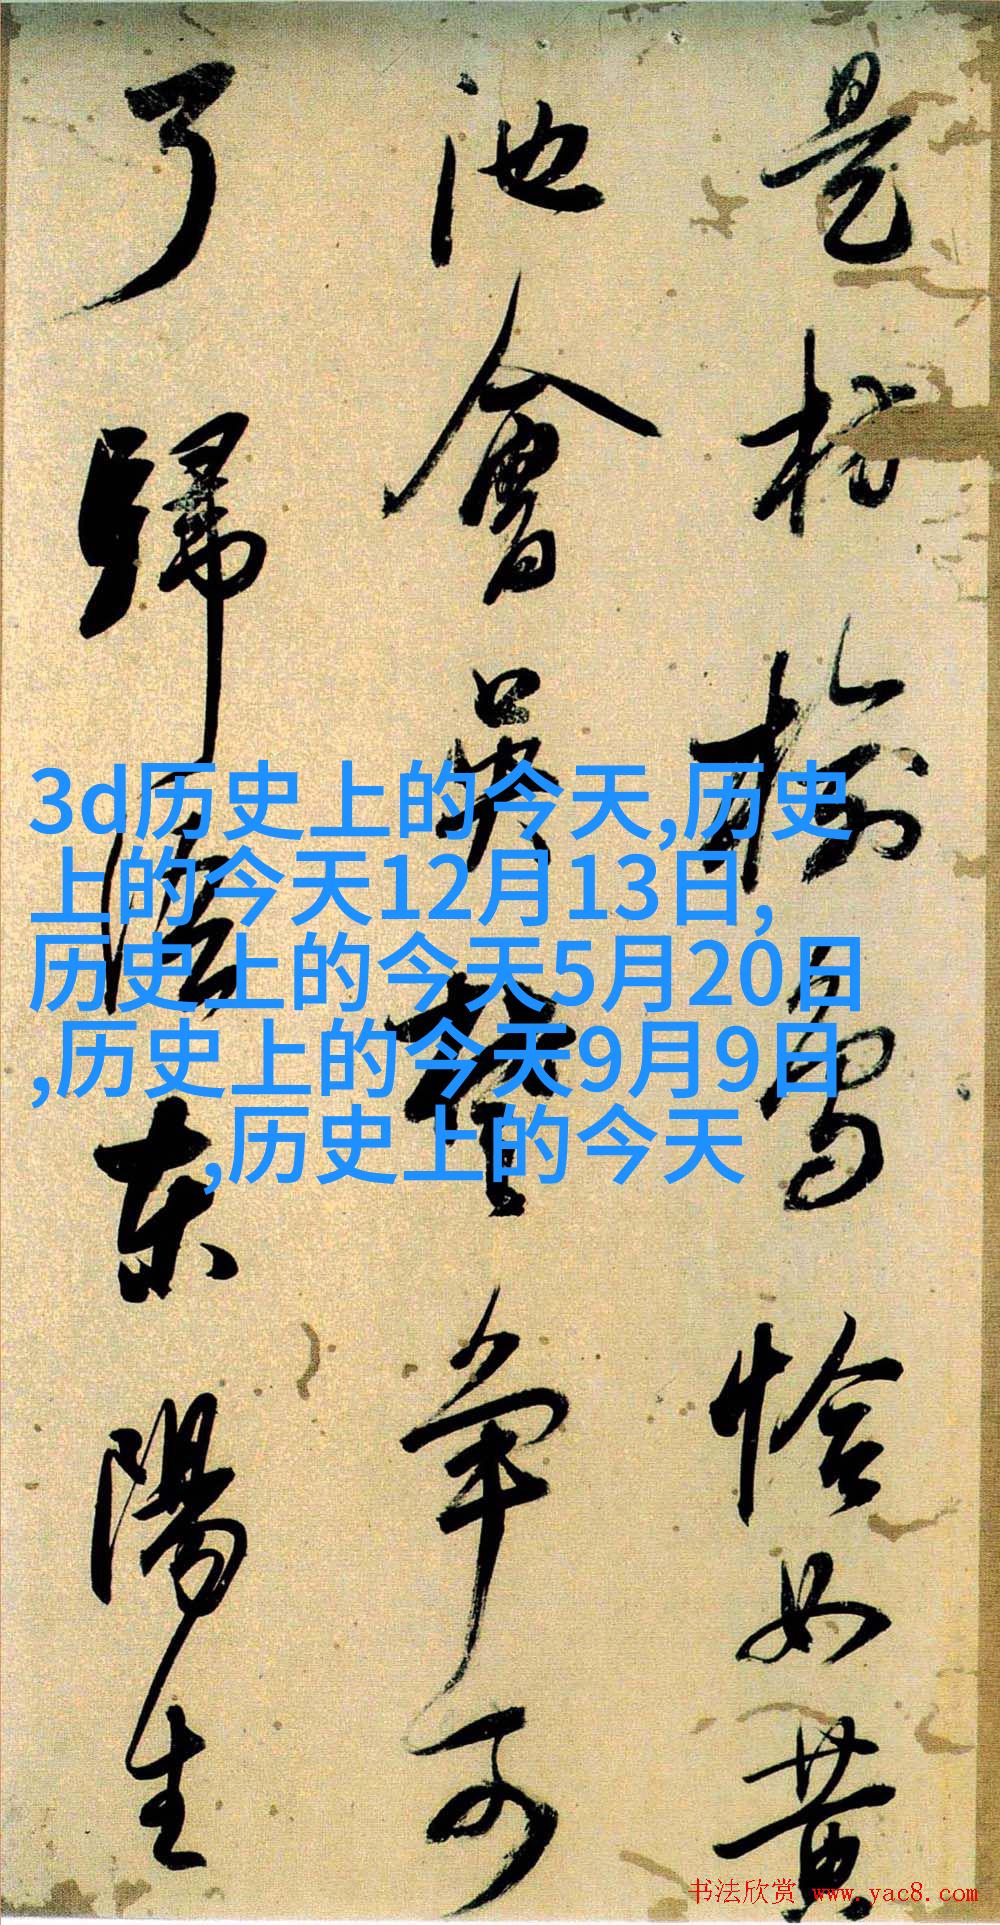 是枋榆恰如黄
池會吴争可
了歸東陽生
3d历史上的今天,历史
上的今天12月13日,
历史上的今天5月20日
,历史上的今天9月9日
,历史上的今天
书法欣赏 www.yac8.com